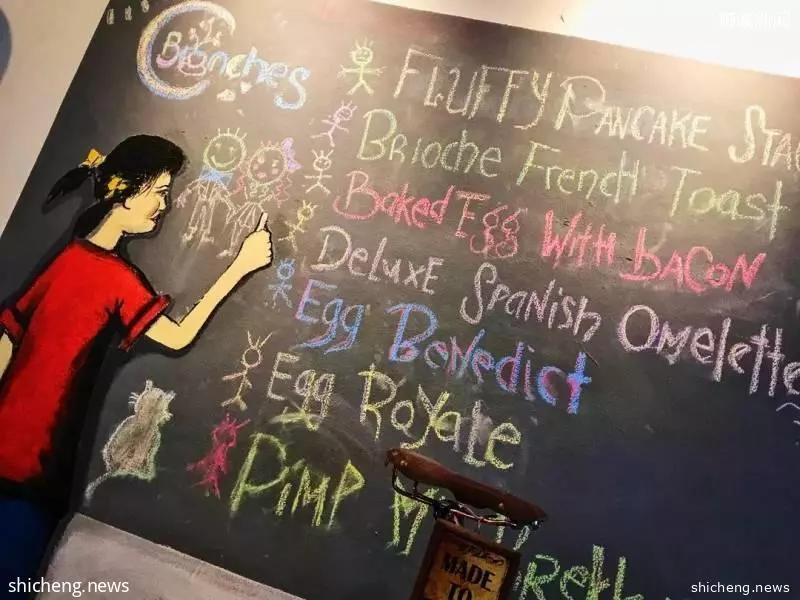 Brunches
FLUFFY PANCAKE
BRioche French Toast
Baked Egg With BACON
DeluxE Spanish Omelette
Egg Benedict
Egg Royale
PiMP
MADE
TO
shicheng.news
shicheng.news